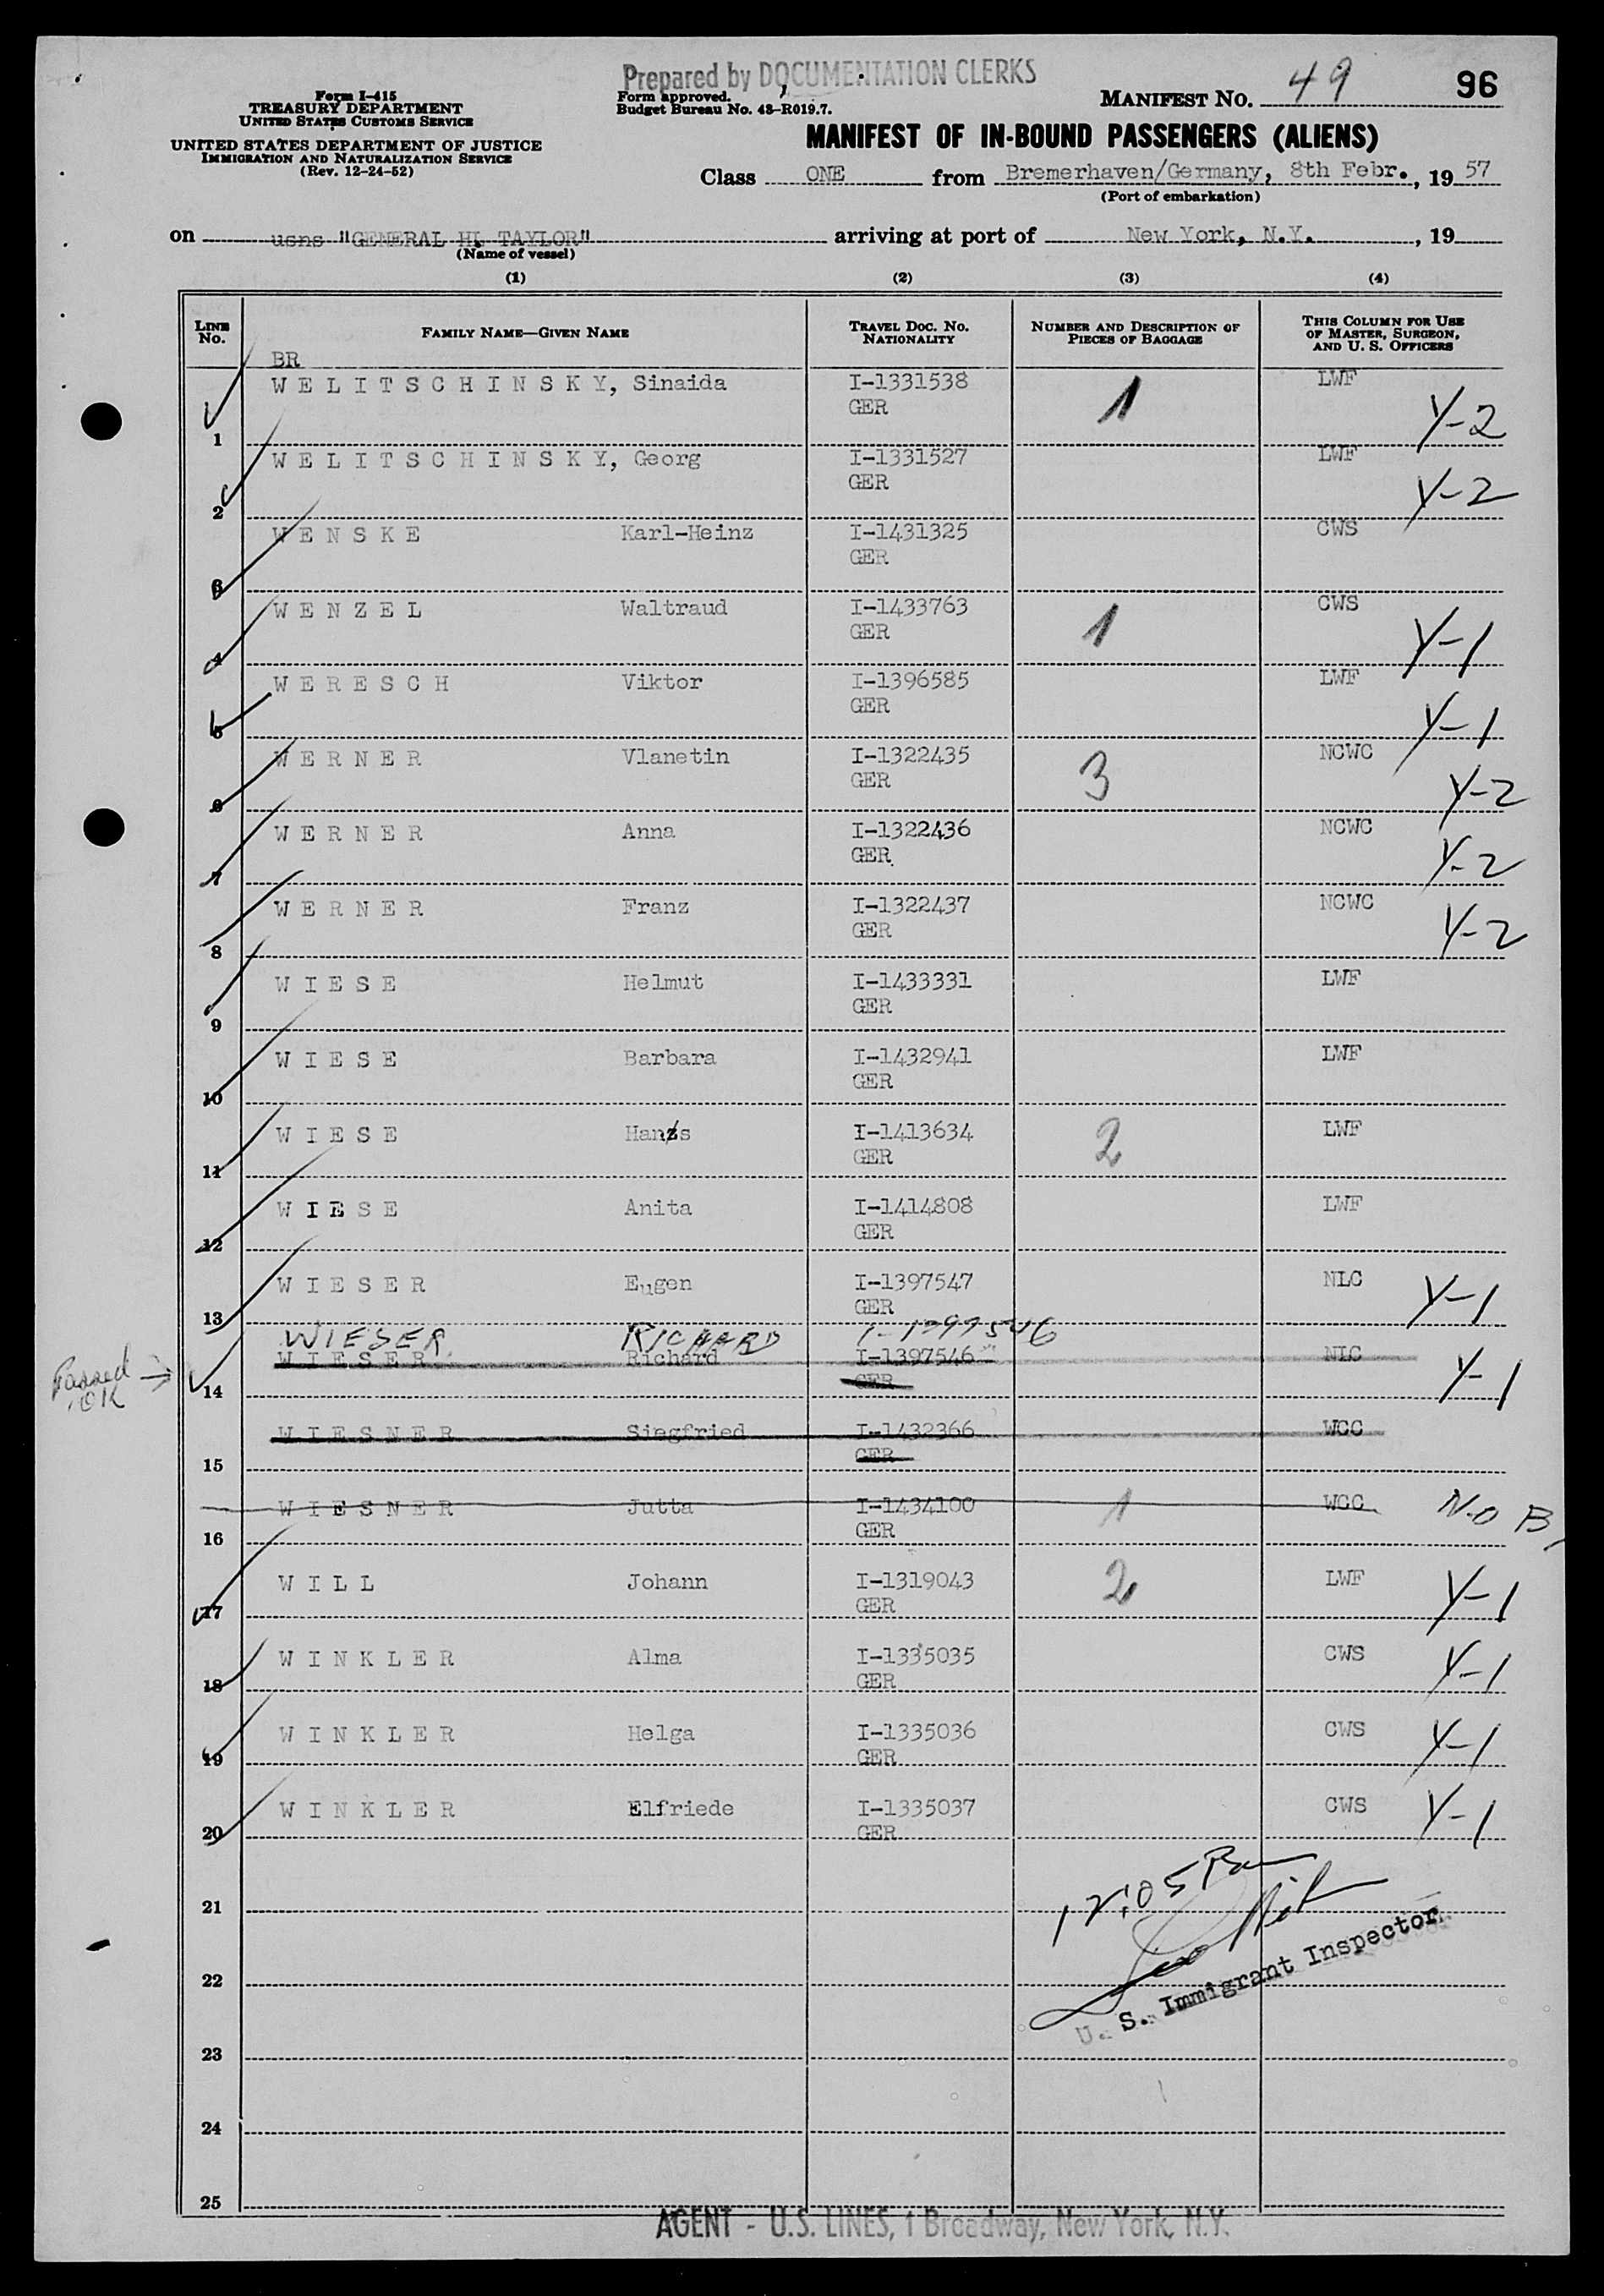 Prepared by DOCUMENTATION CLERKS
Form approved.
Budget Bureau No. 43-R019.7.
MANIFEST NO. 49 96
Form I-415
TREASURY DEPARTMENT
UNITED STATES CUSTOMS SERVICE
UNITED STATES DEPARTMENT OF JUSTICE
IMMIGRATION AND NATURALIZATION SERVICE
(Rev. 12-24-52)
MANIFEST OF IN-BOUND PASSENGERS (ALIENS)
Class ONE from Bremerhaven/Germany, 8th Febr., 19 57
(Port of embarkation)
on usns "GENERAL HI. TAYLOR" arriving at port of New York, N.Y., 19
(Name of vessel)
(1) (2) (3) (4)
LINE No. FAMILY NAME—GIVEN NAME TRAVEL DOC. NO. NATIONALITY NUMBER AND DESCRIPTION OF PIECES OF BAGGAGE THIS COLUMN FOR USE OF MASTER, SURGEON, AND U. S. OFFICERS
BR
1 WELITSCHINSKY, Sinaida I-1331538 GER 1 LWF Y-2
2 WELITSCHINSKY, Georg I-1331527 GER LWF Y-2
3 WENSKE Karl-Heinz I-1431325 GER CWS
4 WENZEL Waltraud I-1433763 GER 1 CWS Y-1
5 WERESCH Viktor I-1396585 GER LWF Y-1
6 WERNER Vlanetin I-1322435 GER 3 NCWC Y-2
7 WERNER Anna I-1322436 GER. NCWC Y-2
8 WERNER Franz I-1322437 GER NCWC Y-2
9 WIESE Helmut I-1433331 GER LWF
10 WIESE Barbara I-1432941 GER LWF
11 WIESE Hans I-1413634 GER 2 LWF
12 WIESE Anita I-1414808 GER LWF
13 WIESER Eugen I-1397547 GER NLC Y-1
WIESER RICHARD I-1397546
Passed OK → 14 WIESER Richard I-1397546 GER NLC Y-1
15 WIESNER Siegfried I-1432366 GER WCC
16 WIESNER Jutta I-1434100 GER 1 WCC N.O B,
17 WILL Johann I-1319043 GER 2 LWF Y-1
18 WINKLER Alma I-1335035 GER CWS Y-1
19 WINKLER Helga I-1335036 GER CWS Y-1
20 WINKLER Elfriede I-1335037 GER CWS Y-1
21
22
23
24
25
12:05
U. S. Immigrant Inspector
AGENT - U.S. LINES, 1 Broadway, New York, N.Y.